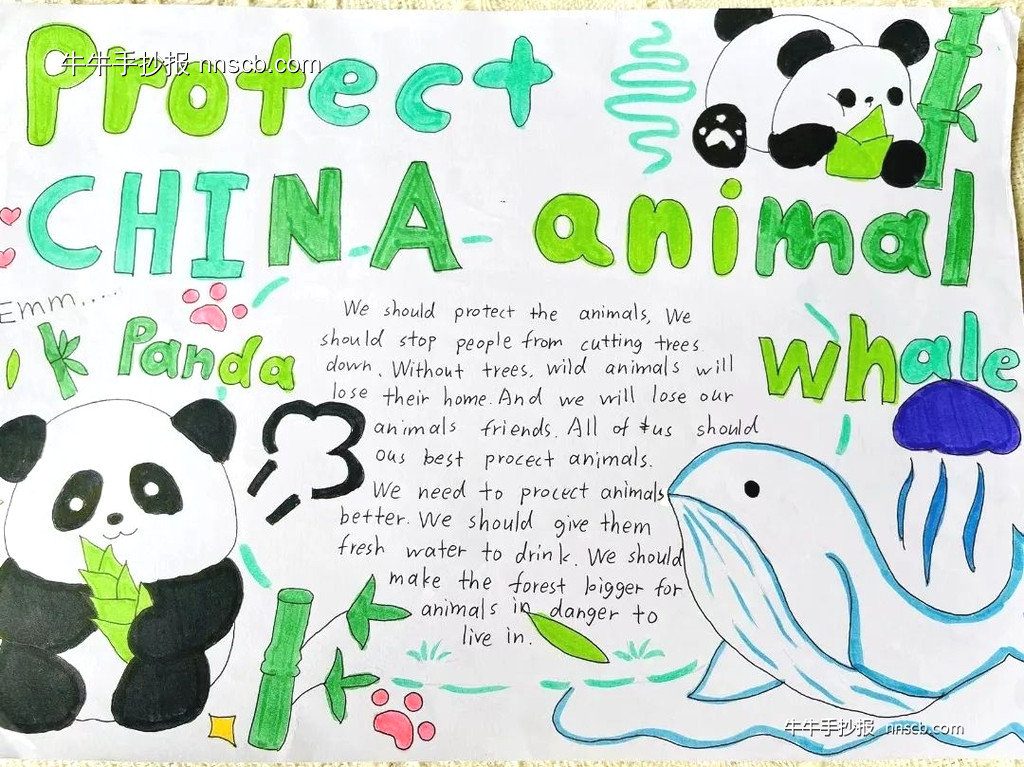 Protect
牛牛手抄报 nnscb.com
CHINA animal
Emm.....
Panda
whale
We should protect the animals, We
should stop people from cutting trees.
down. Without trees. wild animals will
lose their home. And we will lose our
animals friends. All of us should
ous best procect animals.
We need to procect animals
better. We should give them
fresh water to drink. We should
make the forest bigger for
animals in danger to
live in.
牛牛手抄报 nnscb.com